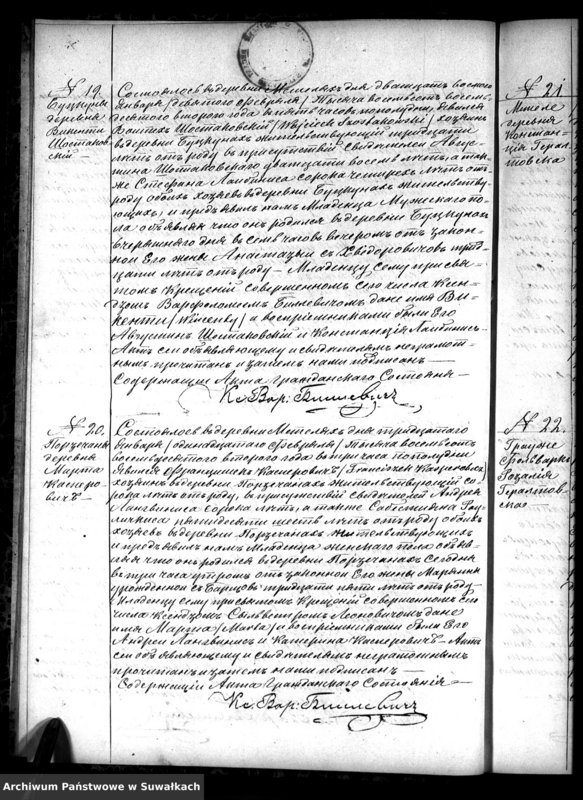 № 19.
Буцкуны
деревня
Винсентій
Шостаковскій
Состоялось въ деревни Метеляхъ дня двадцать восьмого
Января /девятого Февраля/ Тысяча восемьсотъ восемь-
десятъ второго года въ пять часовъ пополудни, явился
Войтехъ Шостаковскій /Wojciech Szostakowski/ хозяинъ
въ деревни Буцкунахъ жительствующій тридцати
лѣтъ отъ роду въ присутствіи свидѣтелей Авгус-
тина Шостаковскаго двадцати восемь лѣтъ, а так-
же Стефана сорока четырехъ лѣтъ отъ
роду обоихъ хозяевъ въ деревни Буцкунахъ жительству-
ющихъ, и предъявилъ намъ Младенца Мужескаго по-
ла объявляя что онъ родился въ деревни Буцкунахъ
вчерашняго дня въ семь часовъ вечеромъ отъ закон-
ной Его жены Анастазіи съ Хведоровичовъ трид-
цати лѣтъ отъ роду — Младенцу сему при свя-
томъ Крещеніи совершенномъ сего числа Ксен-
дзомъ Варфоломеемъ дано имя Ви-
кентій /Wincenty/ а воспріемниками были Его
Августинъ Шостаковскій и Констанція
Актъ сей объявляющему и свидѣтелямъ неграмот-
нымъ прочитанъ и затѣмъ нами подписанъ —
Содержащій Акта Гражданскаго Состоянія —
Кс. Вар:
№ 20.
деревня
Марта
Касперо-
вичъ —
Состоялось въ деревни Метеляхъ дня тридцатаго
Января /одиннадцатаго Февраля/ Тысяча восемьсотъ
восемьдесятъ второго года въ три часа пополудни
явился Францишекъ Касперовичъ /Franciszek Kasperowicz/
хозяинъ въ деревни жительствующій со-
рока лѣтъ отъ роду, въ присутствіи свидѣтелей Андрея
сорока лѣтъ, а также Себестіяна
пятидесяти шести лѣтъ отъ роду обоихъ
хозяевъ въ деревни жительствующихъ
и предъявилъ намъ Младенца женскаго пола объяв-
ляя что онъ родился въ деревни сегодня
въ три часа утромъ отъ законной Его жены Маріанны
урожденной съ тридцати пяти лѣтъ отъ роду —
Младенцу сему при святомъ Крещеніи совершенномъ сего
числа Ксендзомъ Сильвестромъ Леоновичомъ дано
имя Марта /Marta/ а воспріемниками были Его
Андрей и Катерина Касперовичъ — Актъ
сей объявляющему и свидѣтелямъ неграмотнымъ
прочитанъ и затѣмъ нами подписанъ —
Содержащій Акта Гражданскаго Состоянія —
Кс. Вар:
№ 21.
Метеле
деревня
Констан-
ція Герал-
товска
№ 22.
Фольваркъ
Розалія
Гералтов-
ская
Archiwum Państwowe w Suwałkach